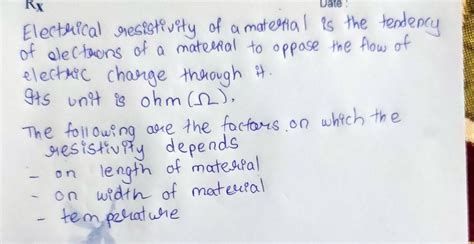 Rx Date :
Electrical resistivity of a material is the tendency
of electrons of a material to oppose the flow of
electric charge through it.
Its unit is ohm (Ω).
The following are the factors on which the
resistivity depends
- on length of material
- on width of material
- temperature